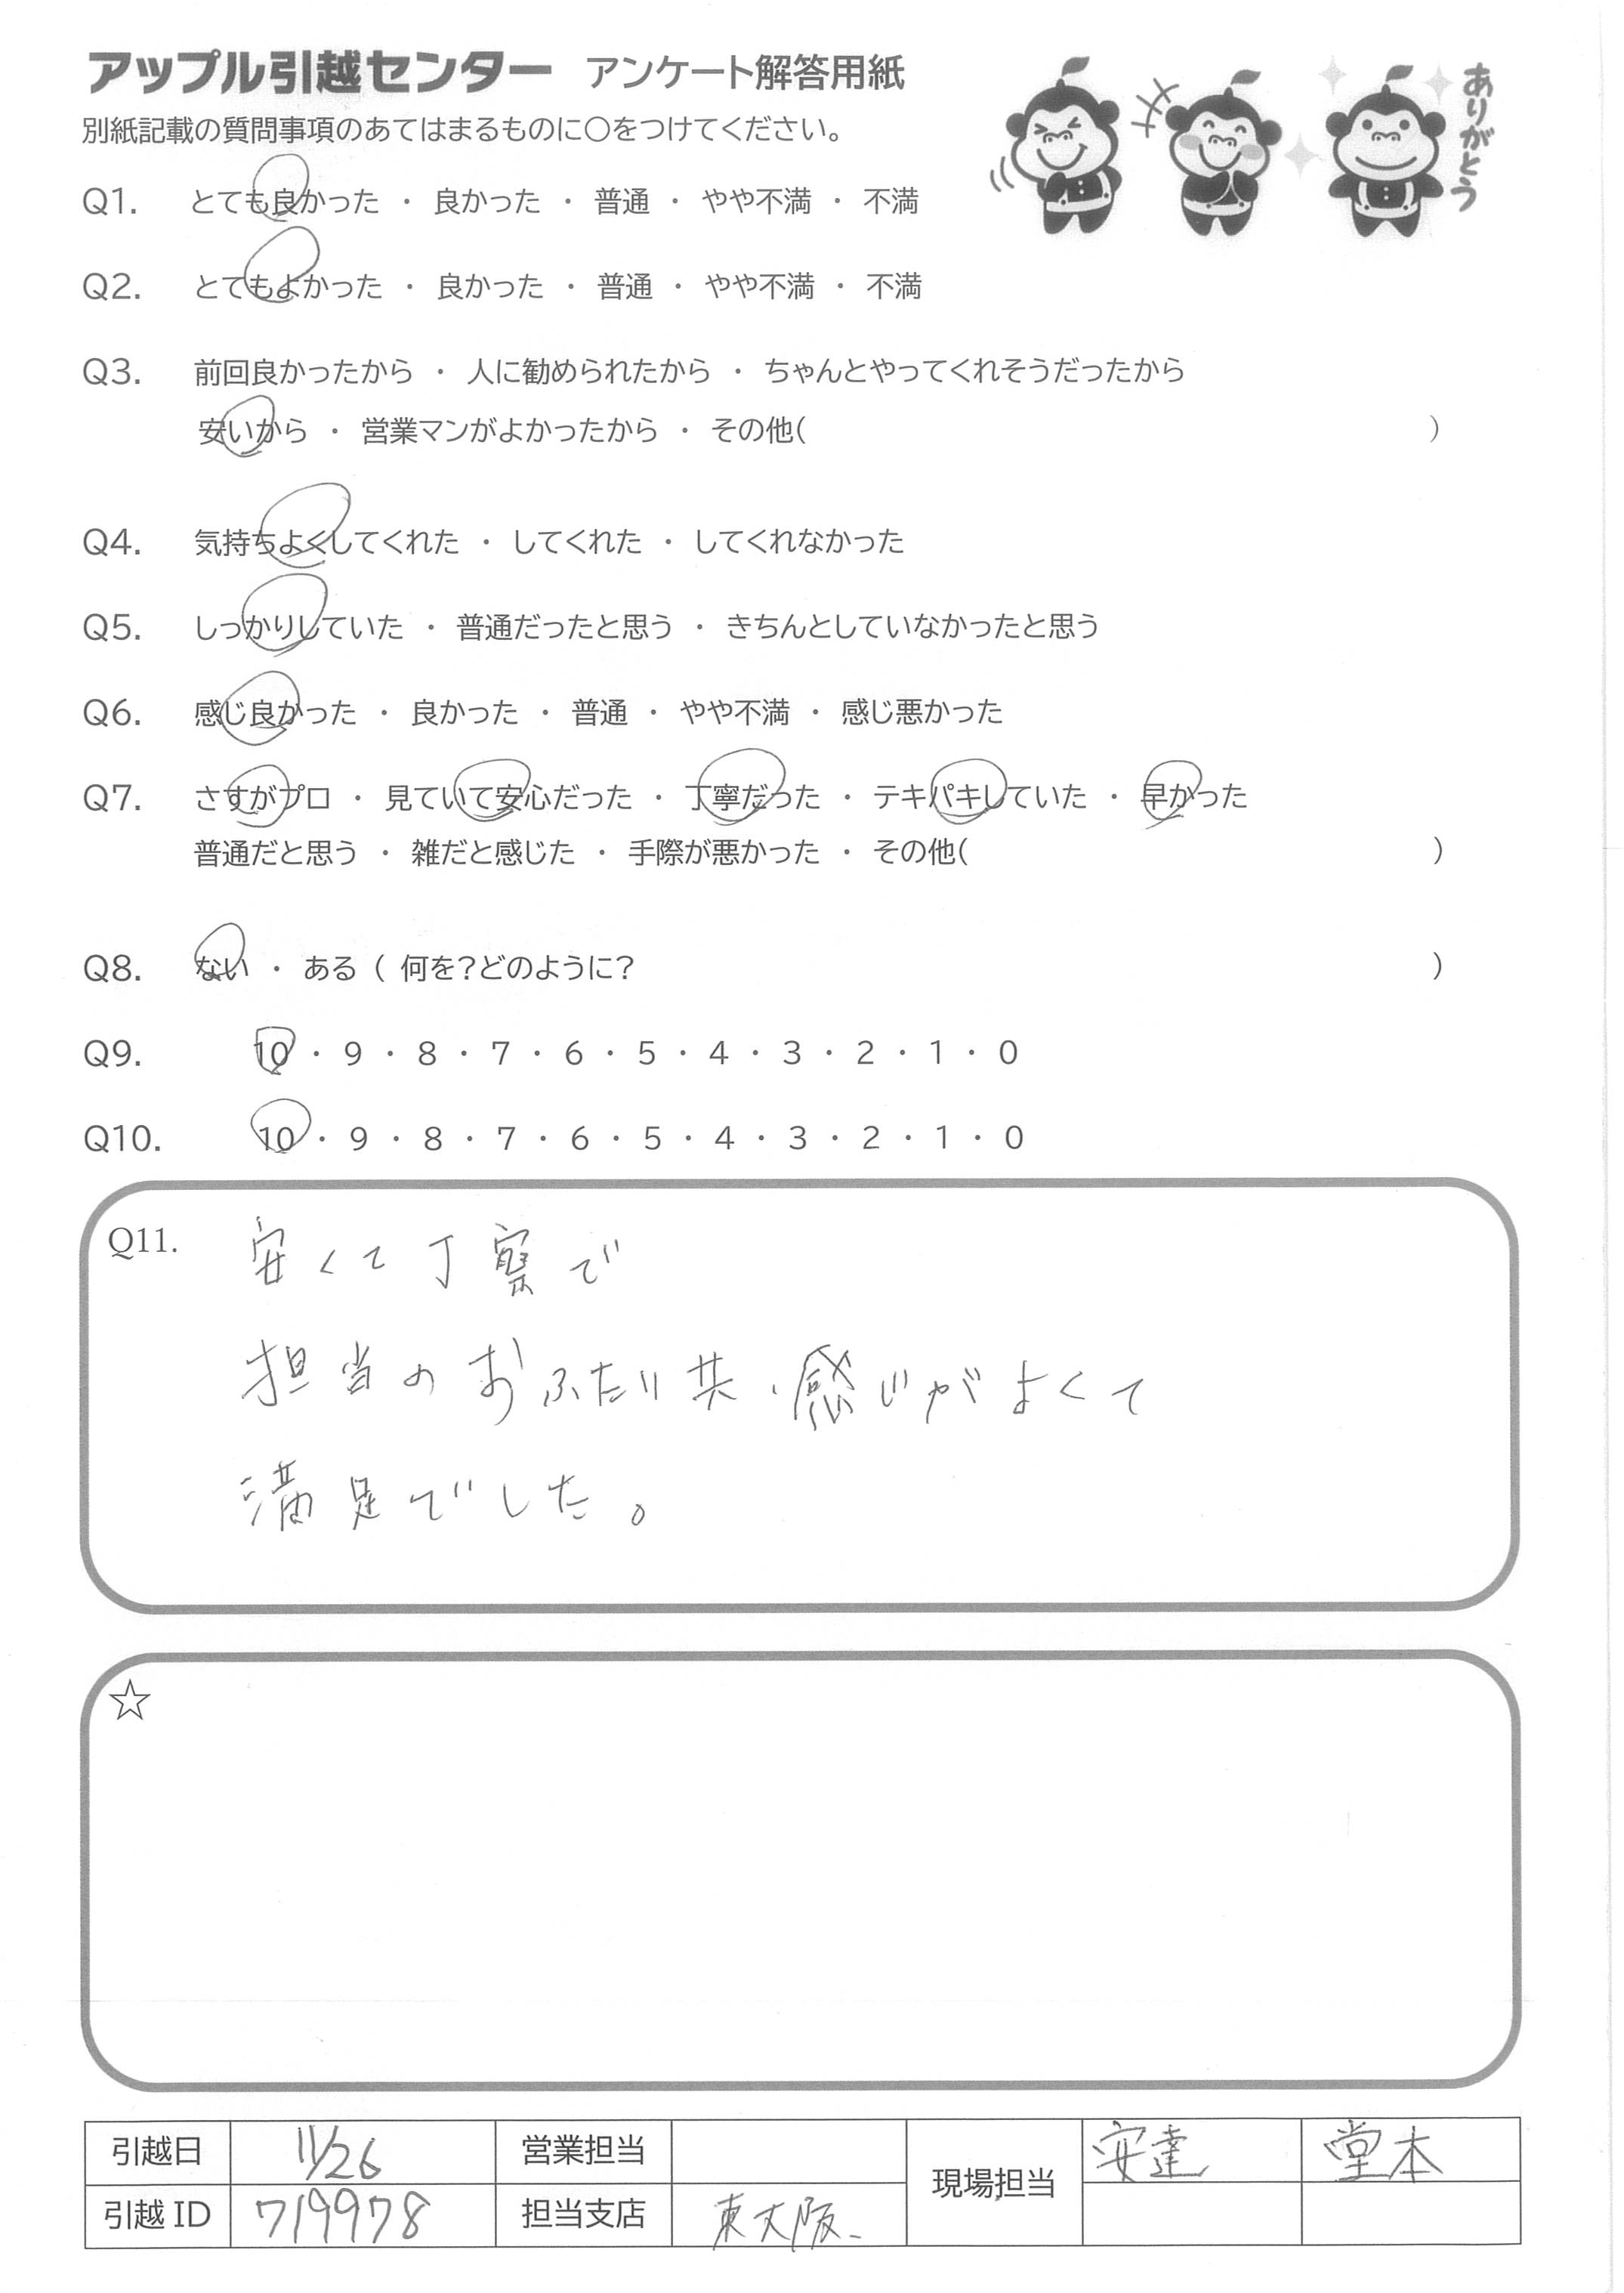 アップル引越センター アンケート解答用紙
別紙記載の質問事項のあてはまるものに○をつけてください。
ありがとう
Q1. とても良かった ・ 良かった ・ 普通 ・ やや不満 ・ 不満
Q2. とてもよかった ・ 良かった ・ 普通 ・ やや不満 ・ 不満
Q3. 前回良かったから ・ 人に勧められたから ・ ちゃんとやってくれそうだったから
安いから ・ 営業マンがよかったから ・ その他( )
Q4. 気持ちよくしてくれた ・ してくれた ・ してくれなかった
Q5. しっかりしていた ・ 普通だったと思う ・ きちんとしていなかったと思う
Q6. 感じ良かった ・ 良かった ・ 普通 ・ やや不満 ・ 感じ悪かった
Q7. さすがプロ ・ 見ていて安心だった ・ 丁寧だった ・ テキパキしていた ・ 早かった
普通だと思う ・ 雑だと感じた ・ 手際が悪かった ・ その他( )
Q8. ない ・ ある ( 何を?どのように? )
Q9. 10 ・ 9 ・ 8 ・ 7 ・ 6 ・ 5 ・ 4 ・ 3 ・ 2 ・ 1 ・ 0
Q10. 10 ・ 9 ・ 8 ・ 7 ・ 6 ・ 5 ・ 4 ・ 3 ・ 2 ・ 1 ・ 0
Q11. 安くて丁寧で
担当のおふたり共、感じがよくて
満足でした。
☆
引越日 11/26 営業担当 現場担当 安達 堂本
引越ID 719978 担当支店 東大阪